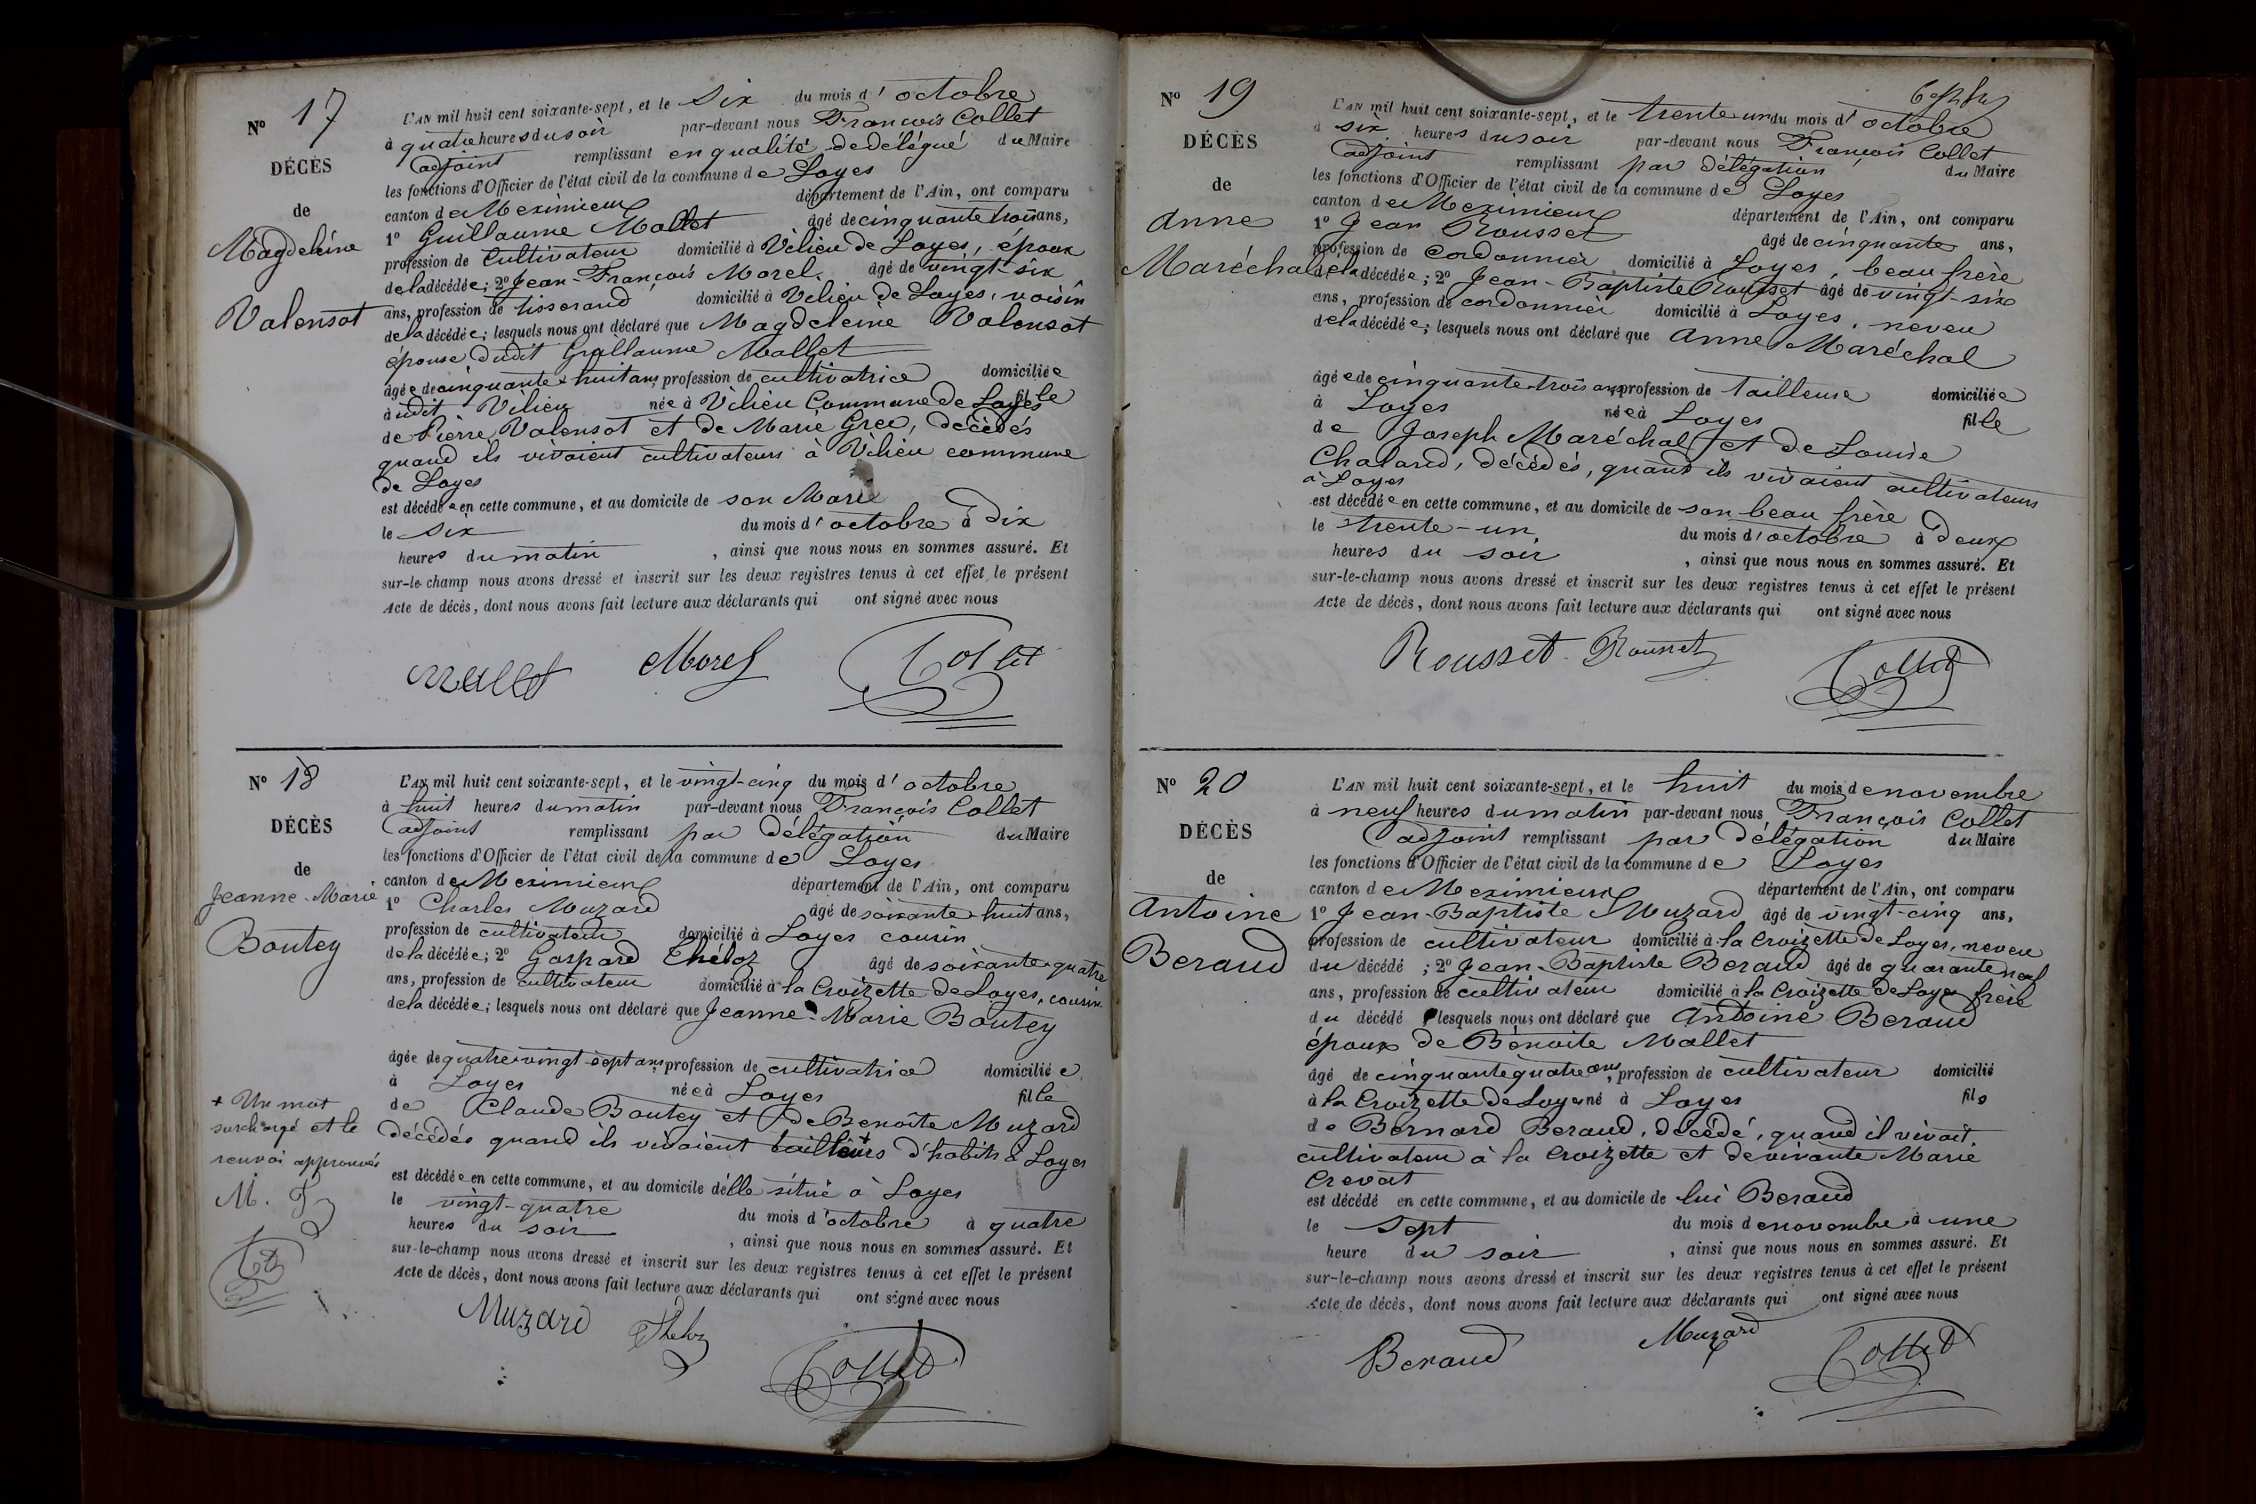 Nº 17
DÉCÈS
de
Magdeleine
Valensot
L'AN mil huit cent soixante-sept, et le six du mois d'octobre
à quatre heures du soir par-devant nous François Collet
adjoint remplissant en qualité de délégué du Maire
les fonctions d'Officier de l'état civil de la commune de Loyes
canton de Meximieux département de l'Ain, ont comparu
1º Guillaume Mallet âgé de cinquante trois ans,
profession de cultivateur domicilié à Vilieu de Loyes, époux
de la décédée; 2º Jean-François Morel, âgé de vingt-six
ans, profession de tisserand domicilié à Vilieu de Loyes, voisin
de la décédée; lesquels nous ont déclaré que Magdeleine Valensot
épouse dudit Guillaume Mallet
âgée de cinquante huit ans profession de cultivatrice domiciliée
audit Vilieu née à Vilieu Commune de Loyes fille
de Pierre Valensot et de Marie Gree, décédés
quand ils vivaient cultivateurs à Vilieu commune
de Loyes
est décédée en cette commune, et au domicile de son Mari
le six du mois d'octobre à dix
heures du matin, ainsi que nous nous en sommes assuré. Et
sur-le-champ nous avons dressé et inscrit sur les deux registres tenus à cet effet le présent
Acte de décès, dont nous avons fait lecture aux déclarants qui ont signé avec nous
Mallet Morel Collet
Nº 18
DÉCÈS
de
Jeanne-Marie
Boutey
L'AN mil huit cent soixante-sept, et le vingt-cinq du mois d'octobre
à huit heures du matin par-devant nous François Collet
adjoint remplissant par délégation du Maire
les fonctions d'Officier de l'état civil de la commune de Loyes
canton de Meximieux département de l'Ain, ont comparu
1º Charles Muzard âgé de soixante huit ans,
profession de cultivateur domicilié à Loyes cousin
de la décédée; 2º Gaspard Théloz âgé de soixante quatre
ans, profession de cultivateur domicilié à la Croizette de Loyes, cousin
de la décédée; lesquels nous ont déclaré que Jeanne-Marie Boutey
âgée de quatre vingt sept ans, profession de cultivatrice domiciliée
à Loyes née à Loyes fille
de Claude Boutey et de Benoîte Muzard
décédés quand ils vivaient tailleurs + d'habits à Loyes
+ Un mot
surchargé et le
renvoi approuvés
M. T
est décédée en cette commune, et au domicile d'elle situé à Loyes
le vingt-quatre du mois d'octobre à quatre
heures du soir, ainsi que nous nous en sommes assuré. Et
sur-le-champ nous avons dressé et inscrit sur les deux registres tenus à cet effet le présent
Acte de décès, dont nous avons fait lecture aux déclarants qui ont signé avec nous
Muzard Theloz
Collet
Nº 19
DÉCÈS
de
Anne
Maréchal
L'AN mil huit cent soixante-sept, et le trente un du mois d'octobre
à six heures du soir par-devant nous François Collet
adjoint remplissant par délégation du Maire
les fonctions d'Officier de l'état civil de la commune de Loyes
canton de Meximieux département de l'Ain, ont comparu
1º Jean Rousset âgé de cinquante ans,
profession de cordonnier domicilié à Loyes, beau frère
de la décédée; 2º Jean-Baptiste Rousset âgé de vingt-six
ans, profession de cordonnier domicilié à Loyes, neveu
de la décédée; lesquels nous ont déclaré que Anne Maréchal
âgée de cinquante-trois ans, profession de tailleuse domiciliée
à Loyes née à Loyes fille
de Joseph Maréchal et de Louise
Chaland, décédés, quand ils vivaient cultivateurs
à Loyes
est décédée en cette commune, et au domicile de son beau frère
le trente-un du mois d'octobre à deux
heures du soir, ainsi que nous nous en sommes assuré. Et
sur-le-champ nous avons dressé et inscrit sur les deux registres tenus à cet effet le présent
Acte de décès, dont nous avons fait lecture aux déclarants qui ont signé avec nous
Rousset Rousset Collet
Nº 20
DÉCÈS
de
Antoine
Beraud
L'AN mil huit cent soixante-sept, et le huit du mois de novembre
à neuf heures du matin par-devant nous François Collet
adjoint remplissant par délégation du Maire
les fonctions d'Officier de l'état civil de la commune de Loyes
canton de Meximieux département de l'Ain, ont comparu
1º Jean-Baptiste Muzard âgé de vingt-cinq ans,
profession de cultivateur domicilié à la Croizette de Loyes, neveu
du décédé; 2º Jean-Baptiste Beraud âgé de quarante neuf
ans, profession de cultivateur domicilié à la Croizette de Loyes frère
du décédé lesquels nous ont déclaré que Antoine Beraud
époux de Benoite Mallet
âgé de cinquante quatre ans, profession de cultivateur domicilié
à la Croizette de Loyes né à Loyes fils
de Bernard Beraud, décédé, quand il vivait,
cultivateur à la Croizette et de vivante Marie
Crevat
est décédé en cette commune, et au domicile de lui Beraud
le sept du mois de novembre à une
heure du soir, ainsi que nous nous en sommes assuré. Et
sur-le-champ nous avons dressé et inscrit sur les deux registres tenus à cet effet le présent
Acte de décès, dont nous avons fait lecture aux déclarants qui ont signé avec nous
Beraud Muzard Collet